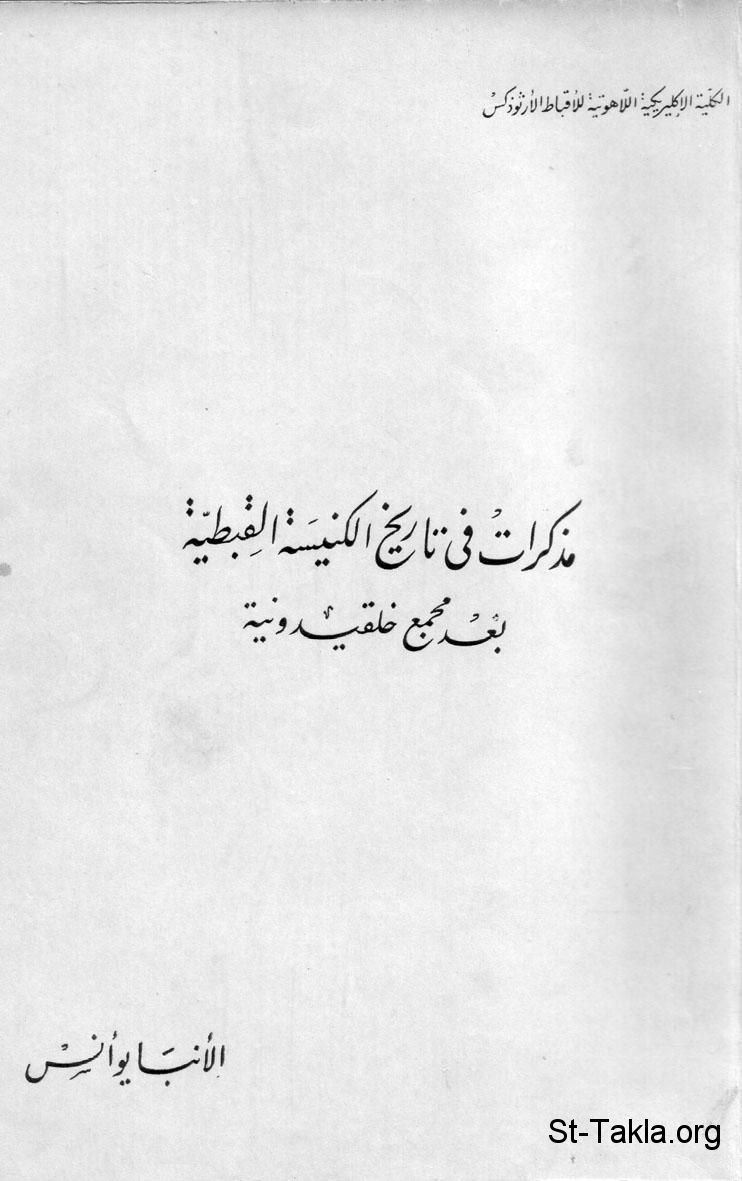 الكلية الإكليريكية اللاهوتية للأقباط الأرثوذكس
مذكرات فى تاريخ الكنيسَة القِبطيّة
بعْد مجمع خلقيدونية
الأنبَا يوأنسْ
St-Takla.org